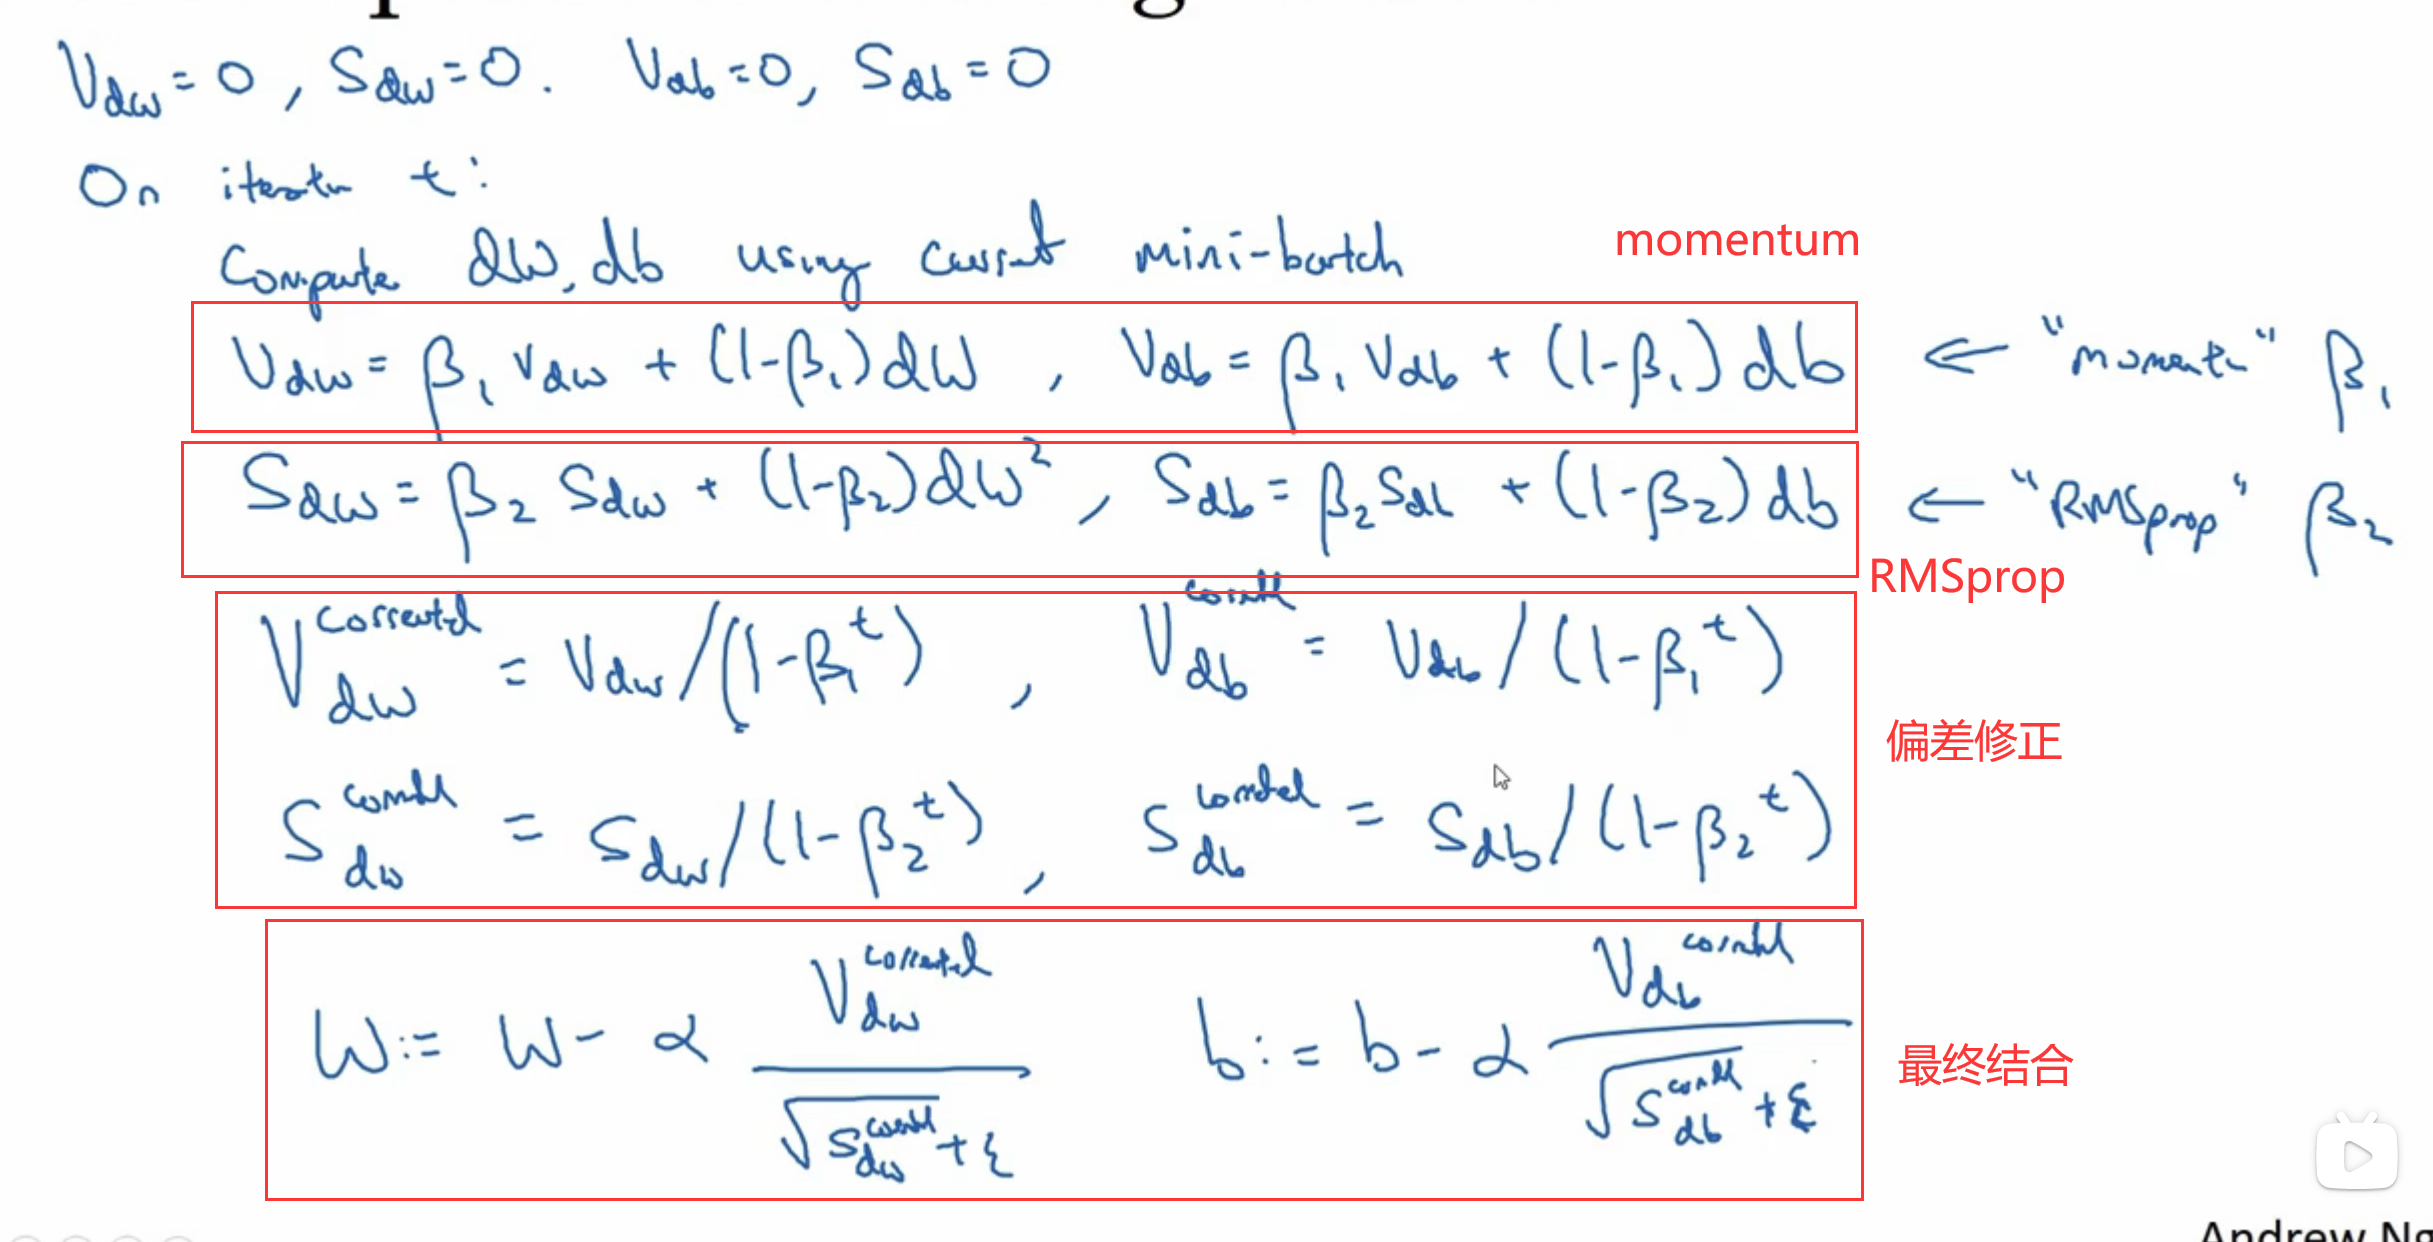 V_dw = 0, S_dw = 0. V_db = 0, S_db = 0
On iteratn t:
Compute dW, db using current mini-batch
momentum
V_dw = β₁ V_dw + (1-β₁) dW, V_db = β₁ V_db + (1-β₁) db ← "momentn" β₁
S_dw = β₂ S_dw + (1-β₂) dW², S_db = β₂ S_db + (1-β₂) db ← "RMSprop" β₂
RMSprop
V_dw^corrected = V_dw/(1-β₁^t), V_db^corrected = V_db/(1-β₁^t)
偏差修正
S_dw^corrected = S_dw/(1-β₂^t), S_db^corrected = S_db/(1-β₂^t)
W := W - α V_dw^corrected / (√S_dw^corrected + ε) b := b - α V_db^corrected / (√S_db^corrected + ε)
最终结合
Andrew Ng